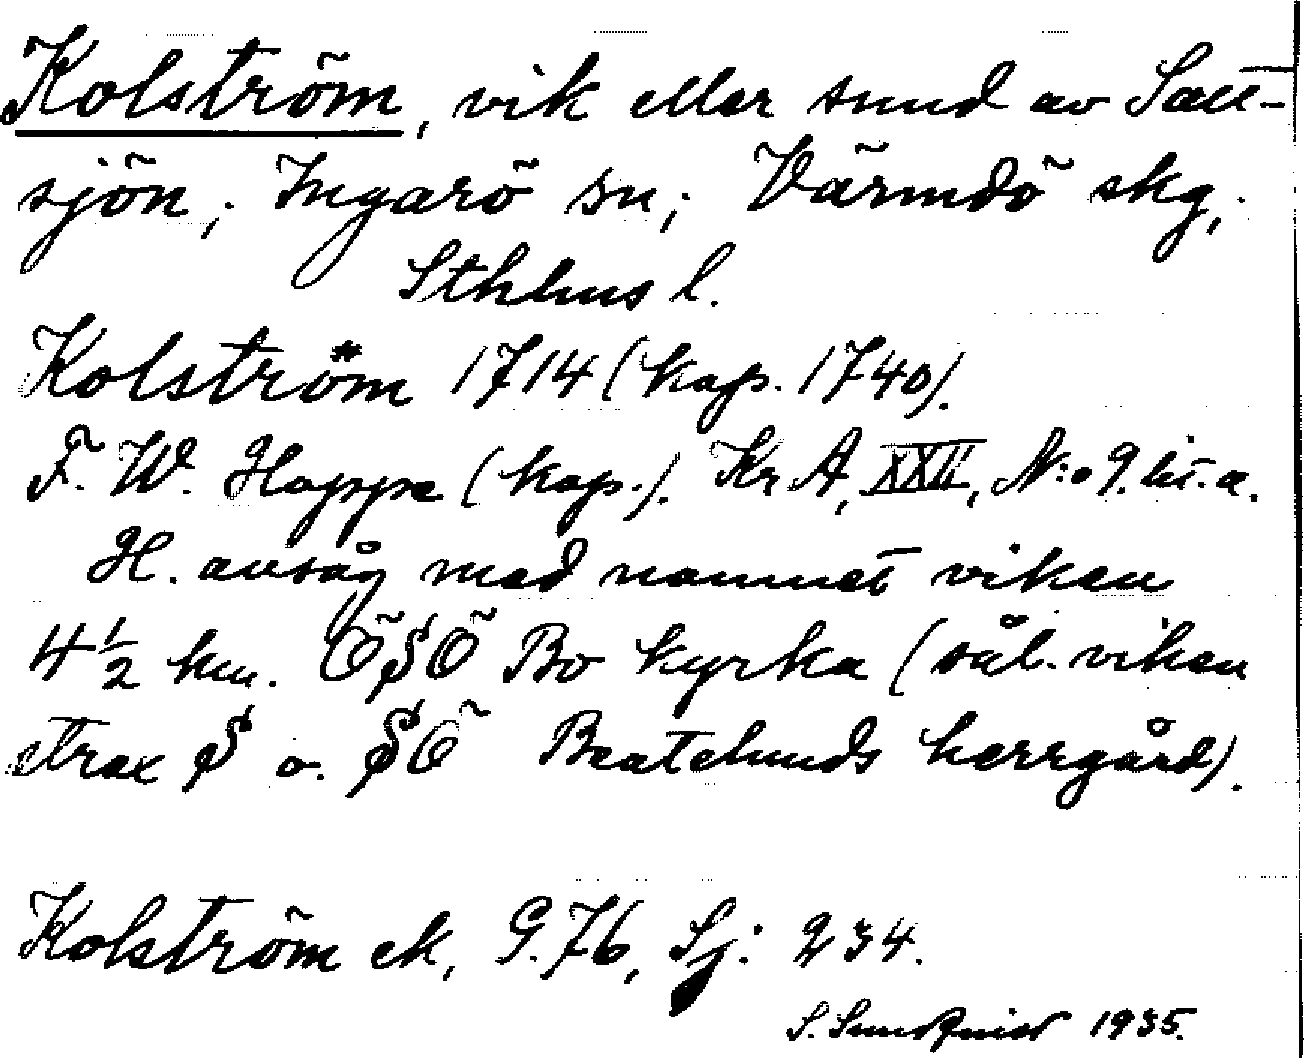 Kolström, vik eller sund av Salt-
sjön, Ingarö sn; Värmdö skg,
Sthlms l.
Kolström 1714 (kop. 1740).
F. W. Hoppe (kop.). Kr A, XXII, N:o 9. lit. a.
H. avsåg med namnet viken
4 1/2 km. ÖSÖ Bo kyrka (sål. viken
strax S o. SÖ Beatelunds herrgård).
Kolström ek, G. 76, Sj: 234.
S. Sundqvist 1935.